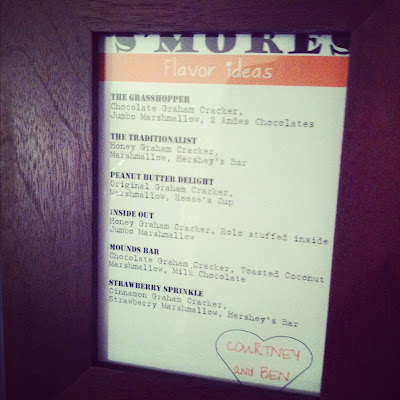 S'MORES
Flavor ideas
THE GRASSHOPPER
Chocolate Graham Cracker,
Jumbo Marshmallow, 2 Andes Chocolates
THE TRADITIONALIST
Honey Graham Cracker,
Marshmallow, Hershey's Bar
PEANUT BUTTER DELIGHT
Original Graham Cracker,
Marshmallow, Reese's Cup
INSIDE OUT
Honey Graham Cracker, Rolo stuffed inside
Jumbo Marshmallow
MOUNDS BAR
Chocolate Graham Cracker, Toasted Coconut
Marshmallow, Milk Chocolate
STRAWBERRY SPRINKLE
Cinnamon Graham Cracker,
Strawberry Marshmallow, Hershey's Bar
COURTNEY
and BEN